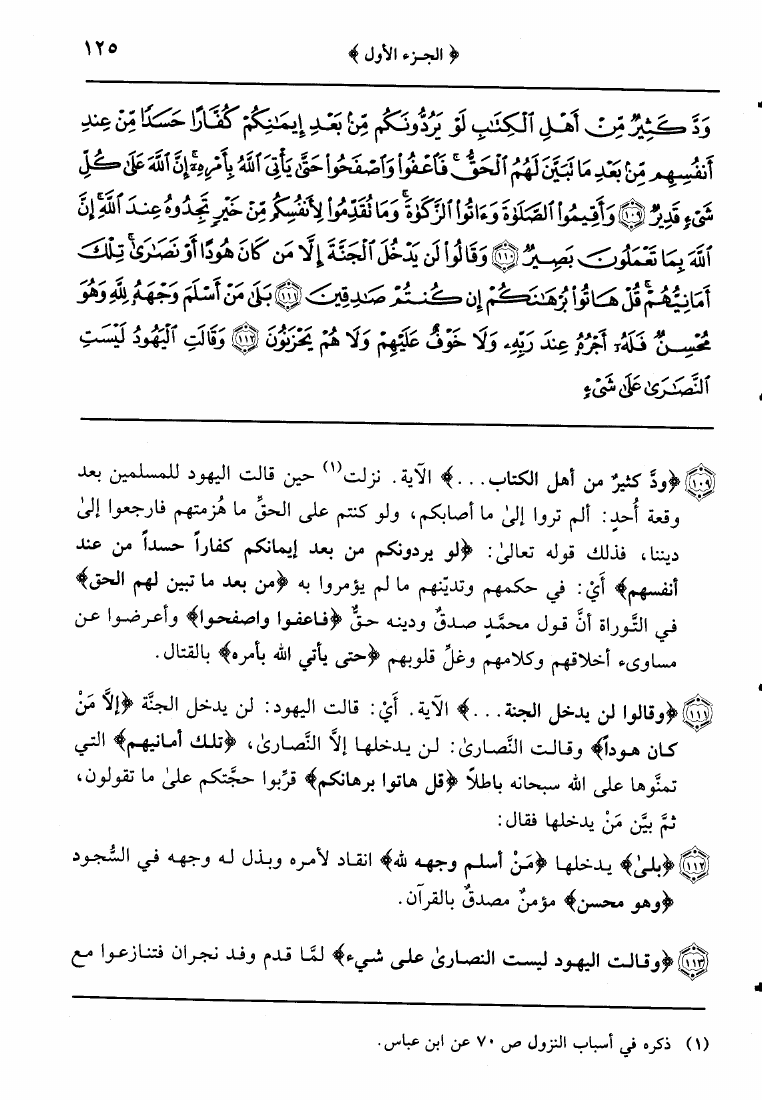 ﴿ الجـزء الأول ﴾ ١٢٥
وَدَّ كَثِيرٌ مِّنْ أَهْلِ ٱلْكِتَٰبِ لَوْ يَرُدُّونَكُم مِّنۢ بَعْدِ إِيمَٰنِكُمْ كُفَّارًا حَسَدًا مِّنْ عِندِ
أَنفُسِهِم مِّنۢ بَعْدِ مَا تَبَيَّنَ لَهُمُ ٱلْحَقُّ ۖ فَٱعْفُوا۟ وَٱصْفَحُوا۟ حَتَّىٰ يَأْتِىَ ٱللَّهُ بِأَمْرِهِۦٓ ۗ إِنَّ ٱللَّهَ عَلَىٰ كُلِّ
شَىْءٍ قَدِيرٌ ١٠٩ وَأَقِيمُوا۟ ٱلصَّلَوٰةَ وَءَاتُوا۟ ٱلزَّكَوٰةَ ۚ وَمَا تُقَدِّمُوا۟ لِأَنفُسِكُم مِّنْ خَيْرٍ تَجِدُوهُ عِندَ ٱللَّهِ ۗ إِنَّ
ٱللَّهَ بِمَا تَعْمَلُونَ بَصِيرٌ ١١٠ وَقَالُوا۟ لَن يَدْخُلَ ٱلْجَنَّةَ إِلَّا مَن كَانَ هُودًا أَوْ نَصَٰرَىٰ ۗ تِلْكَ
أَمَانِيُّهُمْ ۗ قُلْ هَاتُوا۟ بُرْهَٰنَكُمْ إِن كُنتُمْ صَٰدِقِينَ ١١١ بَلَىٰ مَنْ أَسْلَمَ وَجْهَهُۥ لِلَّهِ وَهُوَ
مُحْسِنٌ فَلَهُۥٓ أَجْرُهُۥ عِندَ رَبِّهِۦ وَلَا خَوْفٌ عَلَيْهِمْ وَلَا هُمْ يَحْزَنُونَ ١١٢ وَقَالَتِ ٱلْيَهُودُ لَيْسَتِ
ٱلنَّصَٰرَىٰ عَلَىٰ شَىْءٍ
١٠٩ ﴿ودَّ كثيرٌ من أهل الكتاب...﴾ الآية. نزلت(١) حين قالت اليهود للمسلمين بعد
وقعة أُحدٍ: ألم تروا إلىٰ ما أصابكم، ولو كنتم على الحقِّ ما هُزمتهم فارجعوا إلىٰ
ديننا، فذلك قوله تعالىٰ: ﴿لو يردونكم من بعد إيمانكم كفاراً حسداً من عند
أنفسهم﴾ أيْ: في حكمهم وتديّنهم ما لم يؤمروا به ﴿من بعد ما تبين لهم الحق﴾
في التَّوراة أنَّ قول محمَّدٍ صدقٌ ودينه حـقٌّ ﴿فـاعفـوا واصفحـوا﴾ وأعرضـوا عـن
مساوىء أخلاقهم وكلامهم وغلِّ قلوبهم ﴿حتى يأتي الله بأمره﴾ بالقتال.
١١١ ﴿وقالوا لن يدخل الجنة...﴾ الآية. أيْ: قالت اليهود: لن يدخل الجنَّة ﴿إلاَّ مَنْ
كان هـوداً﴾ وقالـت النَّصارىٰ: لـن يـدخلهـا إلاَّ النَّصارىٰ، ﴿تلـك أمـانيهم﴾ التـي
تمنَّوها على الله سبحانه باطلاً ﴿قل هاتوا برهانكم﴾ قرِّبوا حجَّتكم علىٰ ما تقولون،
ثمَّ بيَّن مَنْ يدخلها فقال:
١١٢ ﴿بلىٰ﴾ يـدخلهـا ﴿مَـنْ أسلـم وجهـه لله﴾ انقـاد لأمـره وبـذل لـه وجهـه فـي السُّجـود
﴿وهو محسن﴾ مؤمنٌ مصدقٌ بالقرآن.
١١٣ ﴿وقـالـت اليهـود ليسـت النصـارىٰ علـى شـيء﴾ لمَّـا قـدم وفـد نجـران فتنـازعـوا مـع
(١) ذكره في أسباب النزول ص ٧٠ عن ابن عباس.